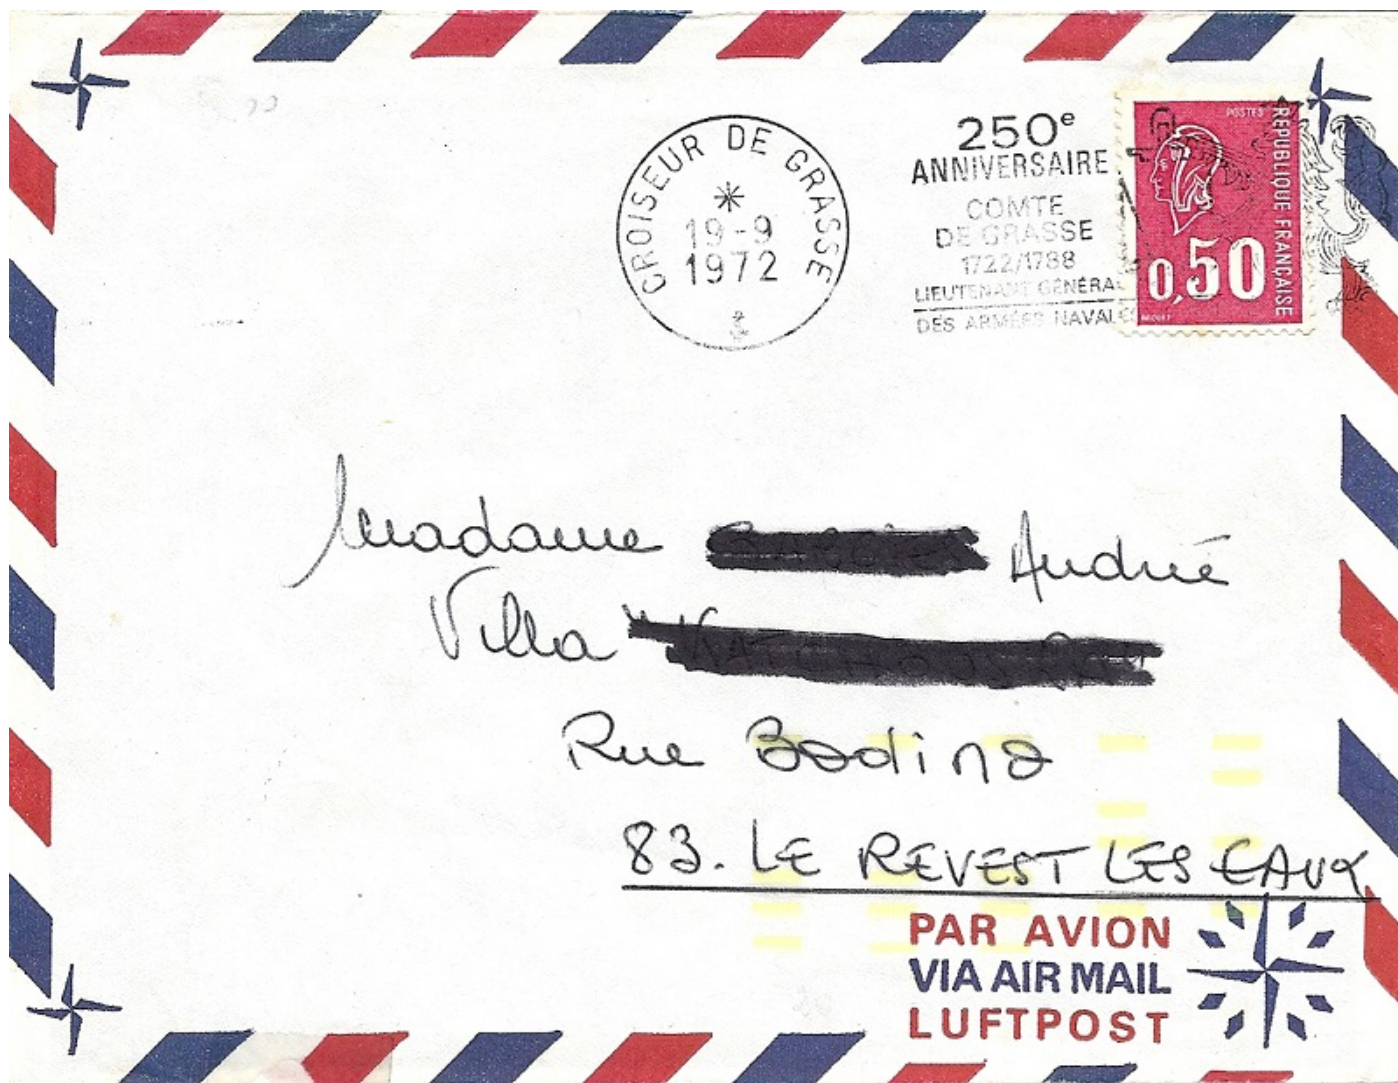 CROISEUR DE GRASSE
19-9
1972
250e
ANNIVERSAIRE
COMTE
DE GRASSE
1722/1788
LIEUTENANT GÉNÉRAL
DES ARMÉES NAVALES
POSTES
RÉPUBLIQUE FRANÇAISE
0,50
Madame André
Villa
Rue Bodina
83. LE REVEST LES EAUX
PAR AVION
VIA AIR MAIL
LUFTPOST